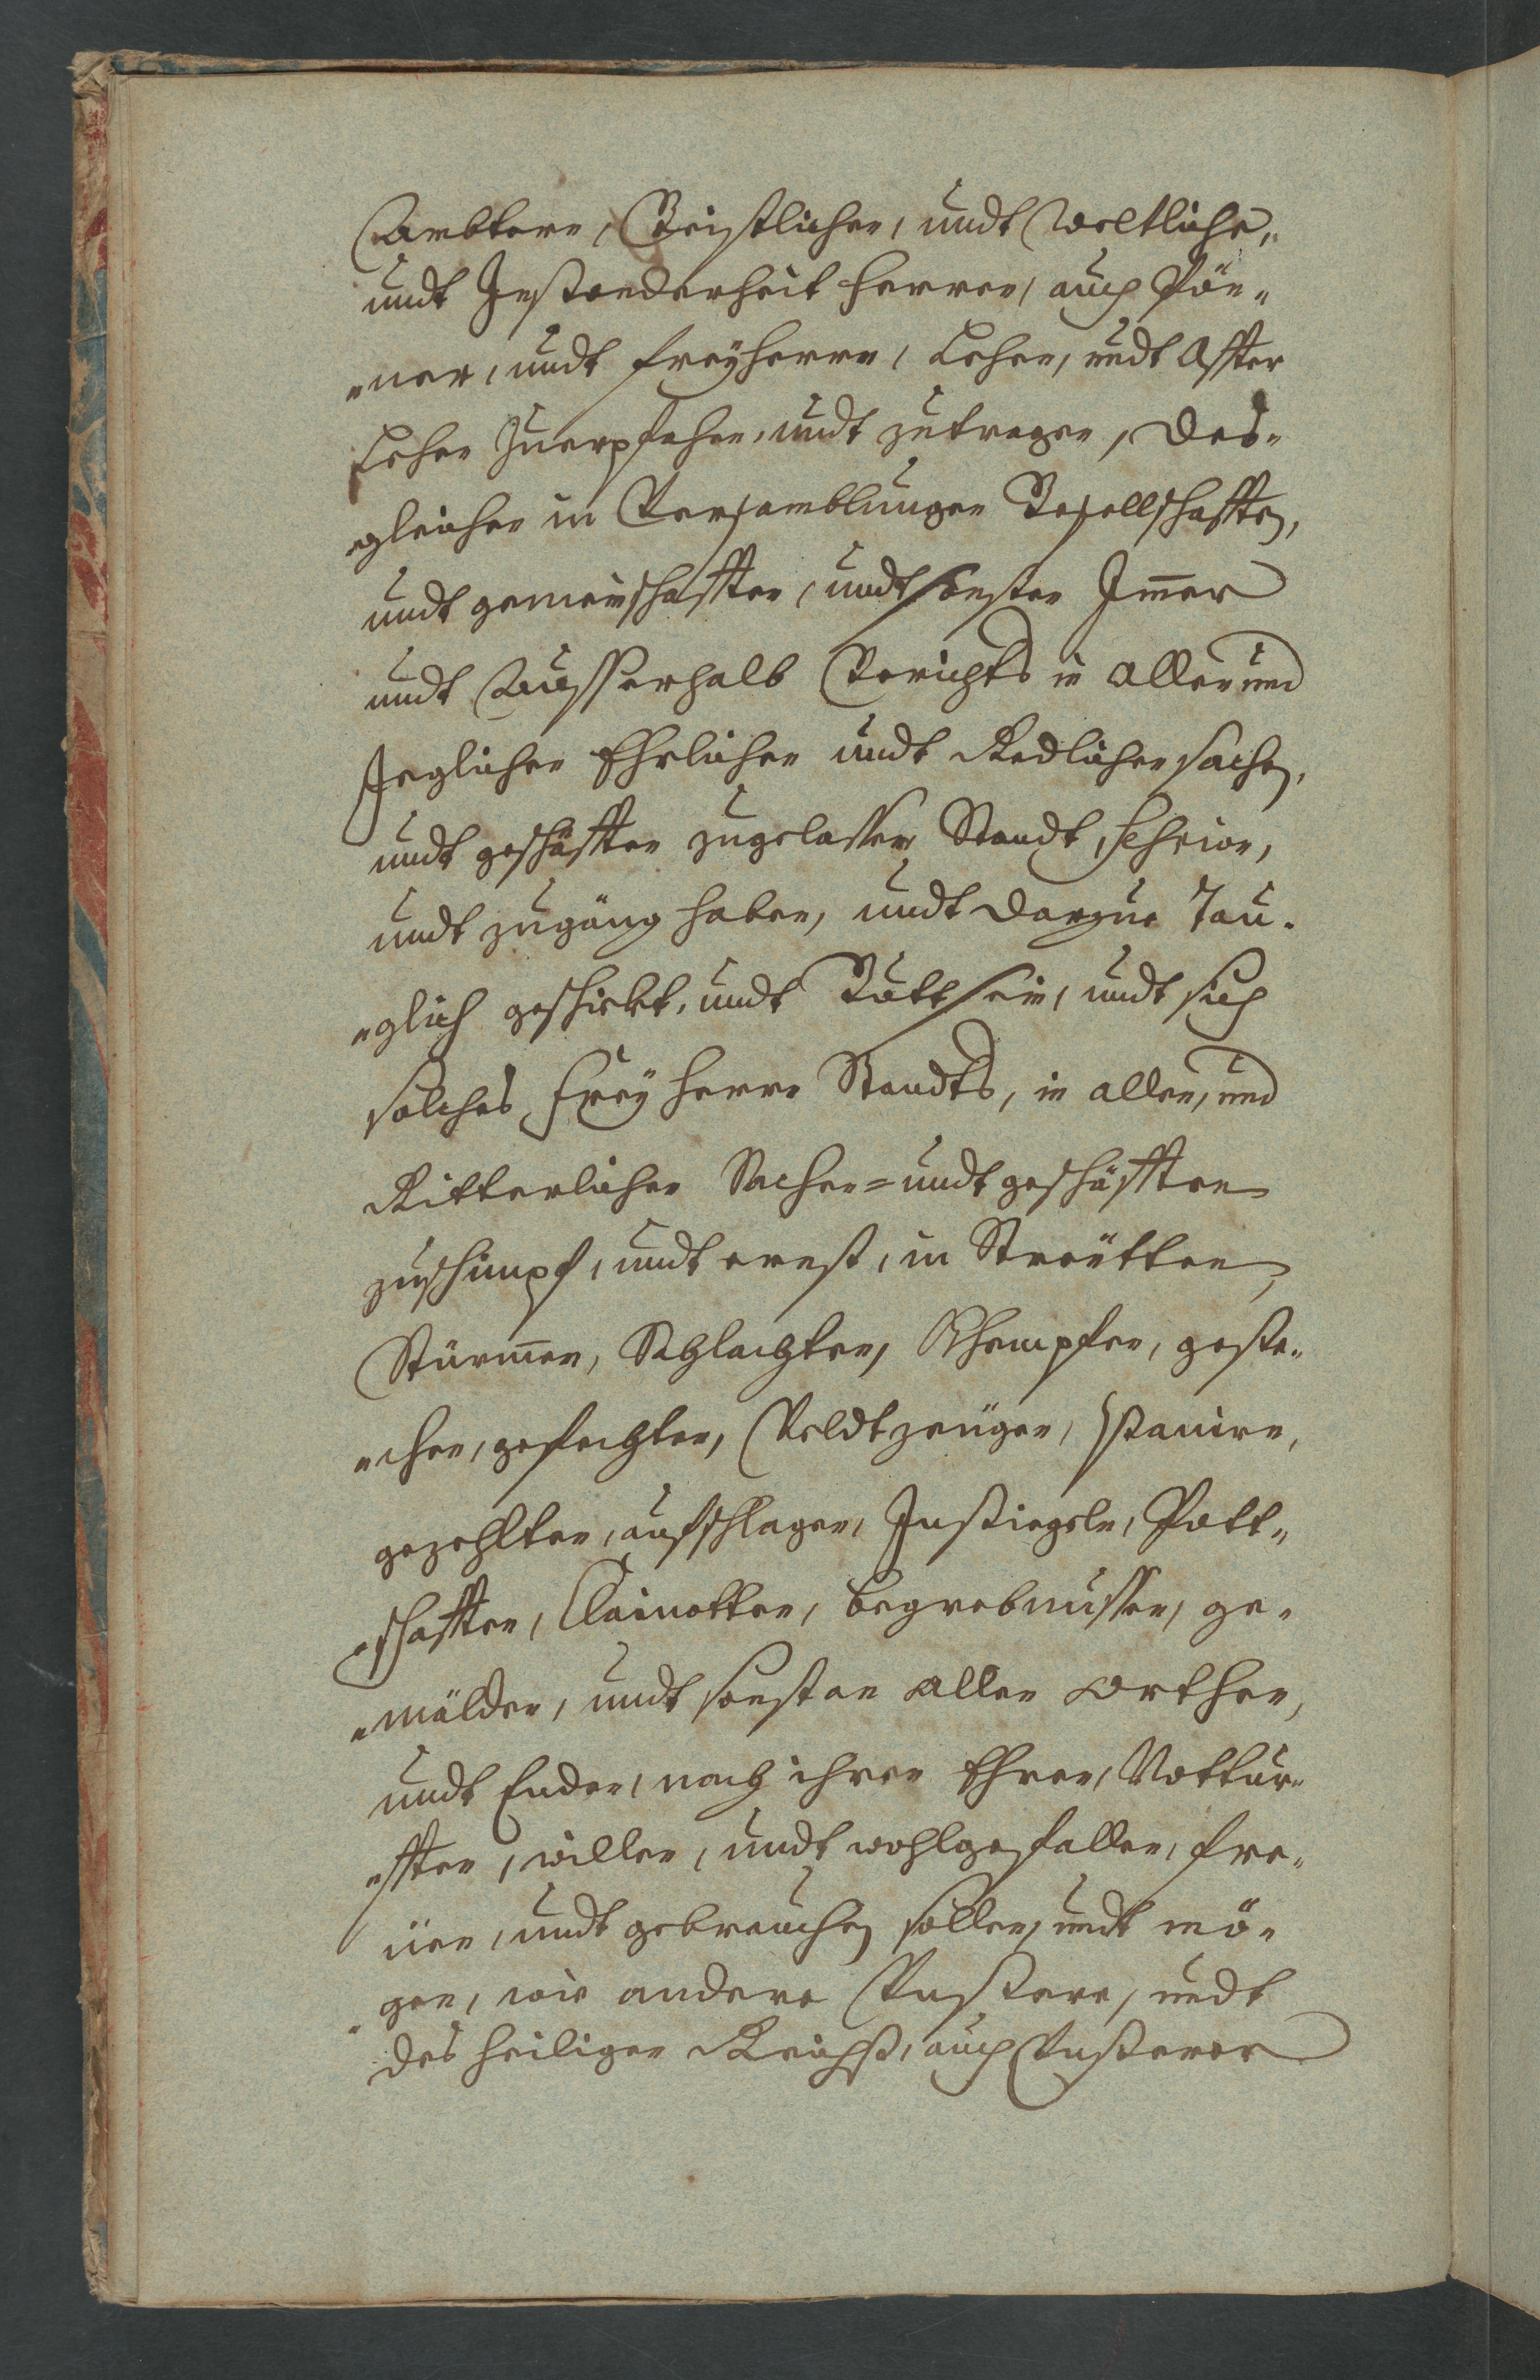 Aembtern, Geistlichen, undt Weltliche„
undt Insonderheit Herren, auch Pön„
„ner, undt Freÿherrn, Lehen, undt Affter
Lehen Zuempfahen, undt zutragen, Des„
„gleichen in Versamblungen Gesellschafften,
undt gemeinschafften, undt sonsten Inner
undt Ausserhalb Gerichts in allen und
Jeglichen Ehrlichen undt Redlichen sachen,
undt geschäfften zugelassen Standt,
undt zugäng haben, undt darzue Tau„
„glich geschickt, undt Gutt sein, undt sich
solches Freÿ Herrn Standts, in allen, und
Ritterlichen Sachen = undt geschäfften
zuschimpf, undt ernst, in Streütten,
Stürmen, Schlachten, Khempfen, geste„
„chen, gefechten, Veldtzeügen, Panire,
gezelten, aufschlagen, Insiegeln, Pett„
„schafften, Clainotten, begrebnussen, ge„
„mälden, undt sonst an allen orthen,
undt Enden, nach ihren Ehren, Nottur„
„fften, willen, undt wohlgefallen, fre„
üen, undt gebrauchen sollen, undt mö„
gen, wie andere Unsere, undt
des heiligen Reichß, auch Unserer